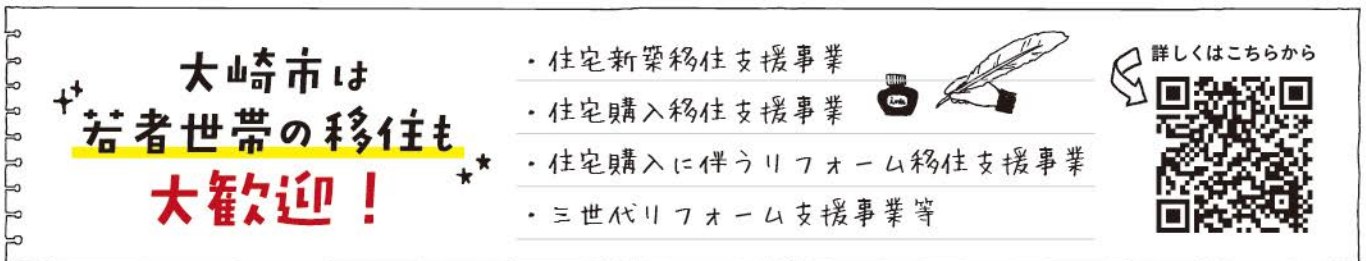 大崎市は
若者世帯の移住も
大歓迎！
・住宅新築移住支援事業
・住宅購入移住支援事業
・住宅購入に伴うリフォーム移住支援事業
・三世代リフォーム支援事業等
ink
詳しくはこちらから